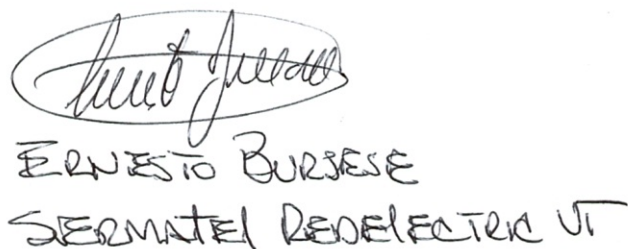 ERNESTO BURSESE
SERMATEL REDELECTRIC UT